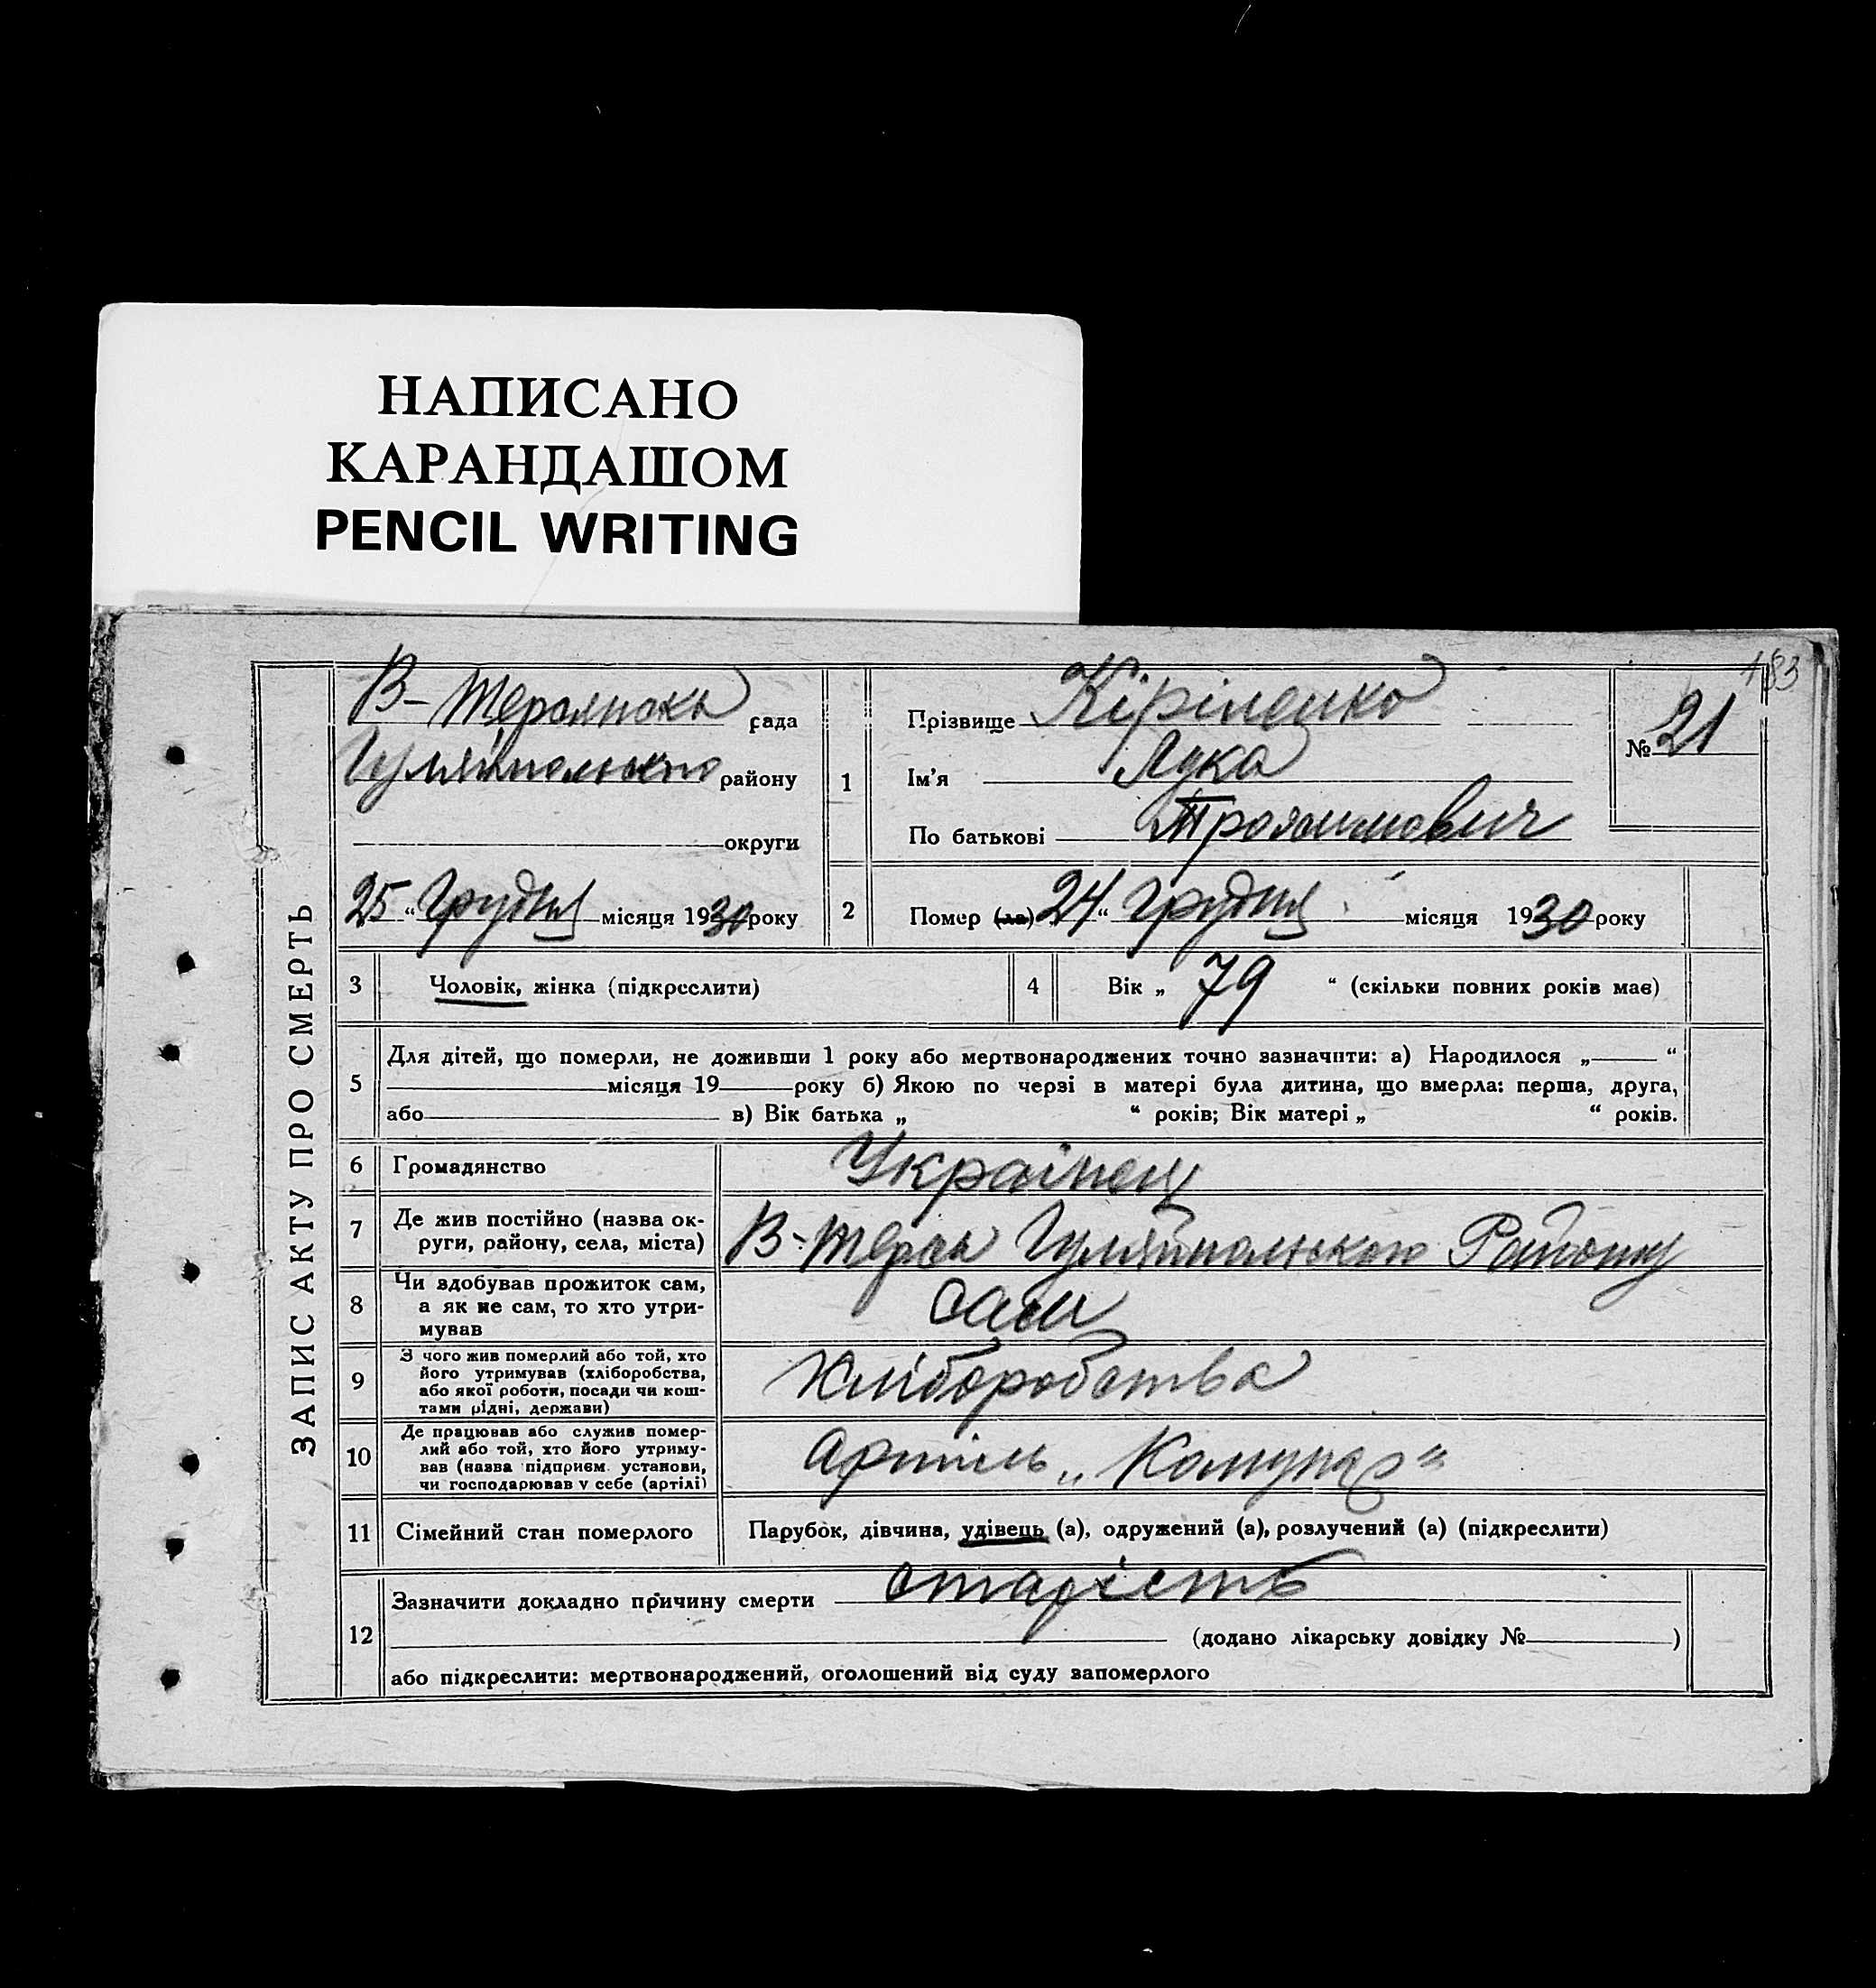 НАПИСАНО
КАРАНДАШОМ
PENCIL WRITING
183
ЗАПИС АКТУ ПРО СМЕРТЬ
В-Терсянська рада
Гуляйпольського району
округи
25 " Грудня місяця 1930 року
1
Прізвище Кіріленко
Ім'я Лука
По батькові Трохимович
№ 21
2
Помер (ла) 24 " Грудня місяця 1930 року
3 Чоловік, жінка (підкреслити)
4 Вік „ 79 " (скільки повних років має)
5
Для дітей, що померли, не доживши 1 року або мертвонароджених точно зазначити: а) Народилося „ "
місяця 19 року б) Якою по черзі в матері була дитина, що вмерла: перша, друга,
або в) Вік батька „ " років; Вік матері „ " років.
6 Громадянство Українец
7 Де жив постійно (назва ок-
руги, району, села, міста) В-Терсь Гуляйпольского Району
8 Чи здобував прожиток сам,
а як не сам, то хто утри-
мував
Сам
9 З чого жив померлий або той, хто
його утримував (хліборобства,
або якої роботи, посади чи кош-
тами рідні, держави)
Хліборобства
10 Де працював або служив помер-
лий або той, хто його утриму-
вав (назва підприєм. установи,
чи господарював у себе (артілі)
Артіль „Комунар"
11 Сімейний стан померлого Парубок, дівчина, удівець (а), одружений (а), розлучений (а) (підкреслити)
12
Зазначити докладно причину смерти старість
(додано лікарську довідку № )
або підкреслити: мертвонароджений, оголошений від суду запомерлого